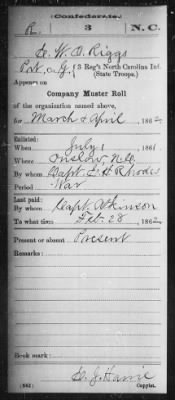 Confederate.
R. 3 N.C.
W. D. Riggs
Pvt, Co. G, 3 Reg't North Carolina Inf.
(State Troops.)
Appears on
Company Muster Roll
of the organization named above,
for March & April, 1862.
Enlisted:
When July 1, 1861.
Where Onslow, N.C.
By whom Capt. E. H. Rhodes
Period War
Last paid:
By whom Capt. Atkinson
To what time Feb. 28, 1862.
Present or absent Present
Remarks:
Book mark:
(642) Copyist.